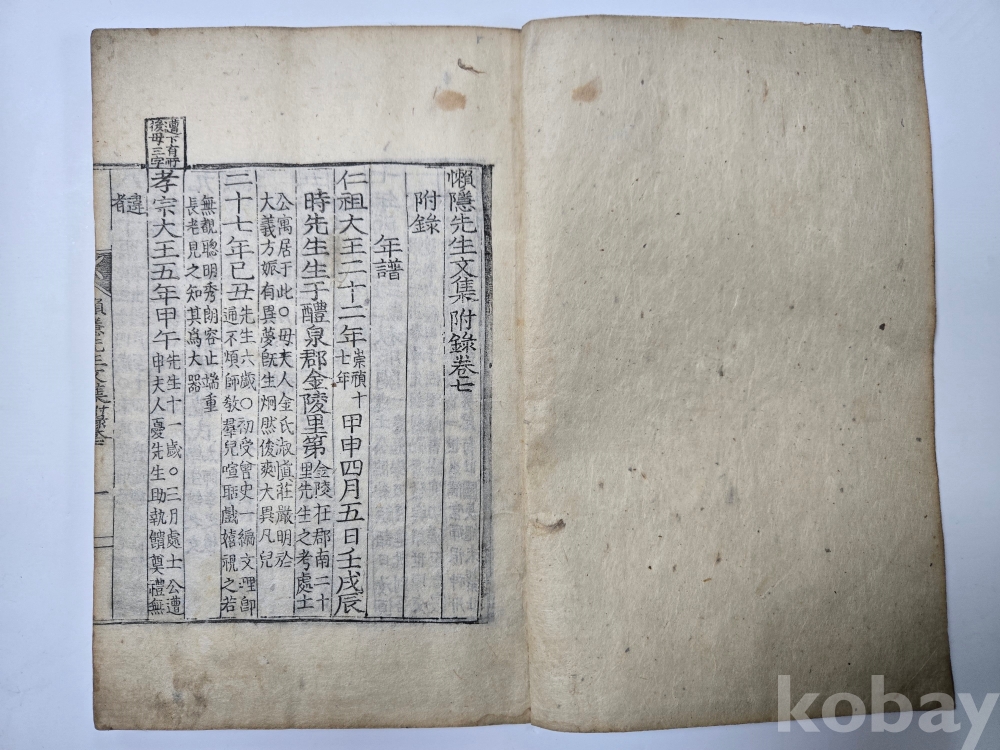 懶隱先生文集附錄卷七
附錄
年譜
仁祖大王二十二年崇禎十七年甲申四月五日壬戌辰
時先生生于醴泉郡金陵里第金陵在郡南二十里先生之考處士
公寓居于此○母夫人金氏淑愼莊嚴明於
大義方娠有異夢旣生炯然俊爽大異凡兒
二十七年己丑先生六歲○初受曾史一編文理卽通不煩師敎羣兒喧聒戱嬉視之若
無覩聰明秀朗容止端重
長老見之知其爲大器
遭下有所
後母三字
孝宗大王五年甲午先生十一歲○三月處士公遭申夫人憂先生助執饋奠禮無
違者
懶隱先生文集附錄卷七
一
kobay